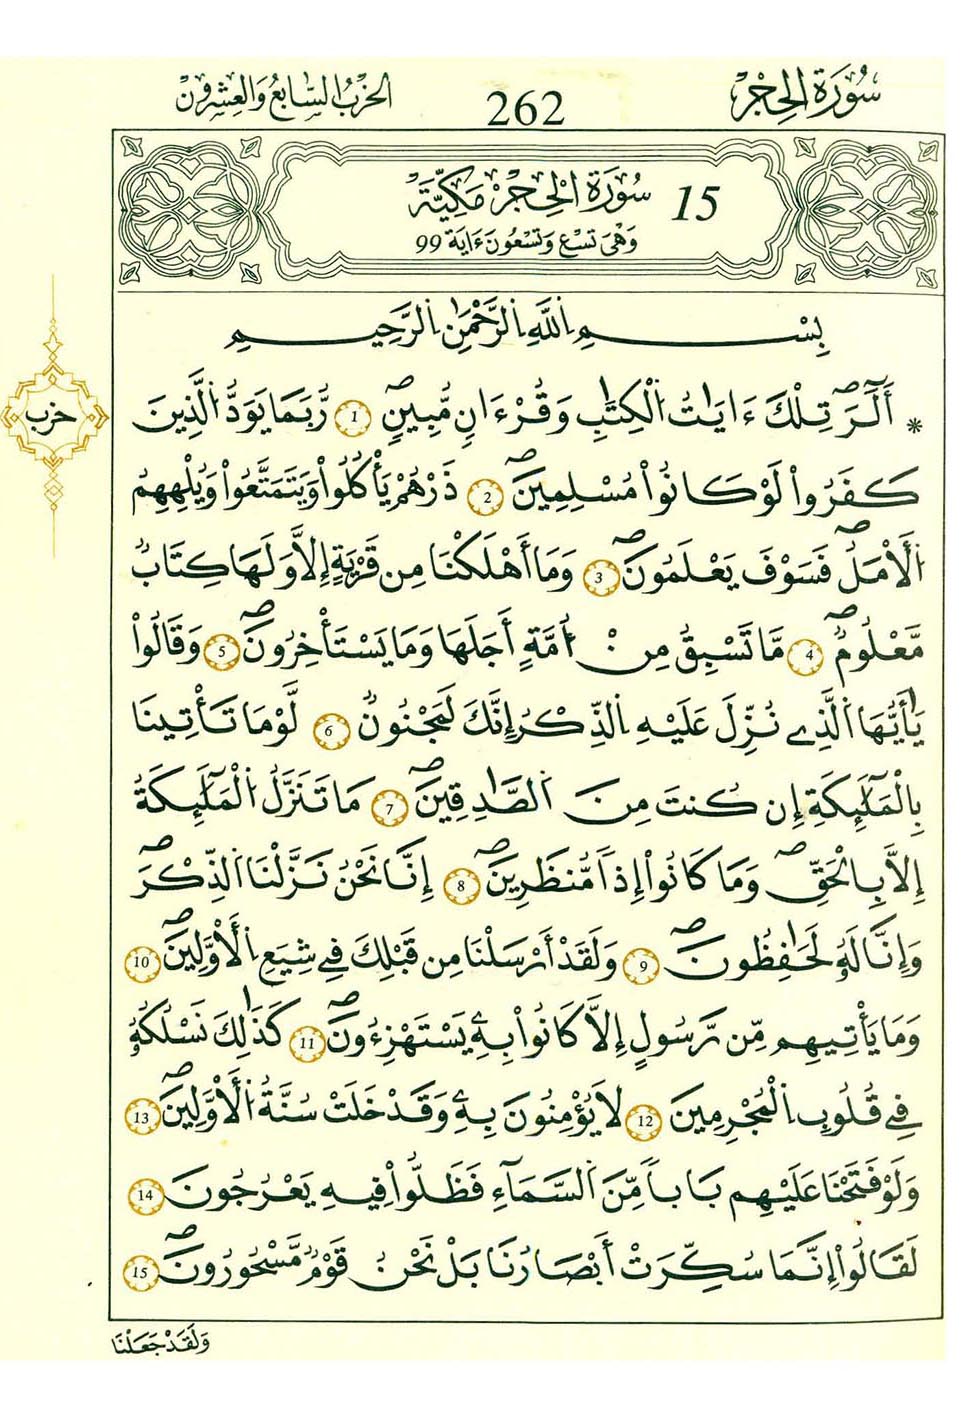 سُورَةُ الْحِجْرِ 262 الحِزْبُ السَّابِعُ وَالعِشْرُونَ
15 سُورَةُ الْحِجْرِ مَكِّيَّةٌ
وَهْيَ تِسْعٌ وَتِسْعُونَ ءَايَةً 99
بِسْمِ اِللَّهِ اِلرَّحْمَٰنِ اِلرَّحِيمِ
* أَلَٓرَۖ تِلْكَ ءَايَٰتُ اُلْكِتَٰبِ وَقُرْءَانٖ مُّبِينٖۖ 1 رُّبَمَا يَوَدُّ اُلَّذِينَ
كَفَرُواْ لَوْ كَانُواْ مُسْلِمِينَۖ 2 ذَرْهُمْ يَأْكُلُواْ وَيَتَمَتَّعُواْ وَيُلْهِهِمُ
اُلْأَمَلُۖ فَسَوْفَ يَعْلَمُونَۖ 3 وَمَا أَهْلَكْنَا مِن قَرْيَةٍ اِلَّا وَلَهَا كِتَابٞ
مَّعْلُومٞۖ 4 مَّا تَسْبِقُ مِنُ اُمَّةٍ أَجَلَهَا وَمَا يَسْتَأْخِرُونَۖ 5 وَقَالُواْ
يَٰأَيُّهَا اَلَّذِے نُزِّلَ عَلَيْهِ اِلذِّكْرُ إِنَّكَ لَمَجْنُونٞ 6 لَّوْمَا تَأْتِينَا
بِالْمَلَٰٓئِكَةِ إِن كُنتَ مِنَ اَلصَّٰدِقِينَۖ 7 مَا تَنَزَّلُ اُلْمَلَٰٓئِكَةُ
إِلَّا بِالْحَقِّۖ وَمَا كَانُواْ إِذاٗ مُّنظَرِينَۖ 8 إِنَّا نَحْنُ نَزَّلْنَا اَلذِّكْرَۖ
وَإِنَّا لَهُۥ لَحَٰفِظُونَۖ 9 وَلَقَدْ أَرْسَلْنَا مِن قَبْلِكَ فِے شِيَعِ اِلْأَوَّلِينَۖ 10
وَمَا يَأْتِيهِم مِّن رَّسُولٍ إِلَّا كَانُواْ بِهِۦ يَسْتَهْزِءُونَۖ 11 كَذَٰلِكَ نَسْلُكُهُۥ
فِے قُلُوبِ اِلْمُجْرِمِينَ 12 لَا يُؤْمِنُونَ بِهِۦ وَقَدْ خَلَتْ سُنَّةُ اُلْأَوَّلِينَۖ 13
وَلَوْ فَتَحْنَا عَلَيْهِم بَاباٗ مِّنَ اَلسَّمَآءِ فَظَلُّواْ فِيهِ يَعْرُجُونَ 14
لَقَالُواْ إِنَّمَا سُكِّرَتْ أَبْصَٰرُنَا بَلْ نَحْنُ قَوْمٞ مَّسْحُورُونَۖ 15
وَلَقَدْ جَعَلْنَا
حزب